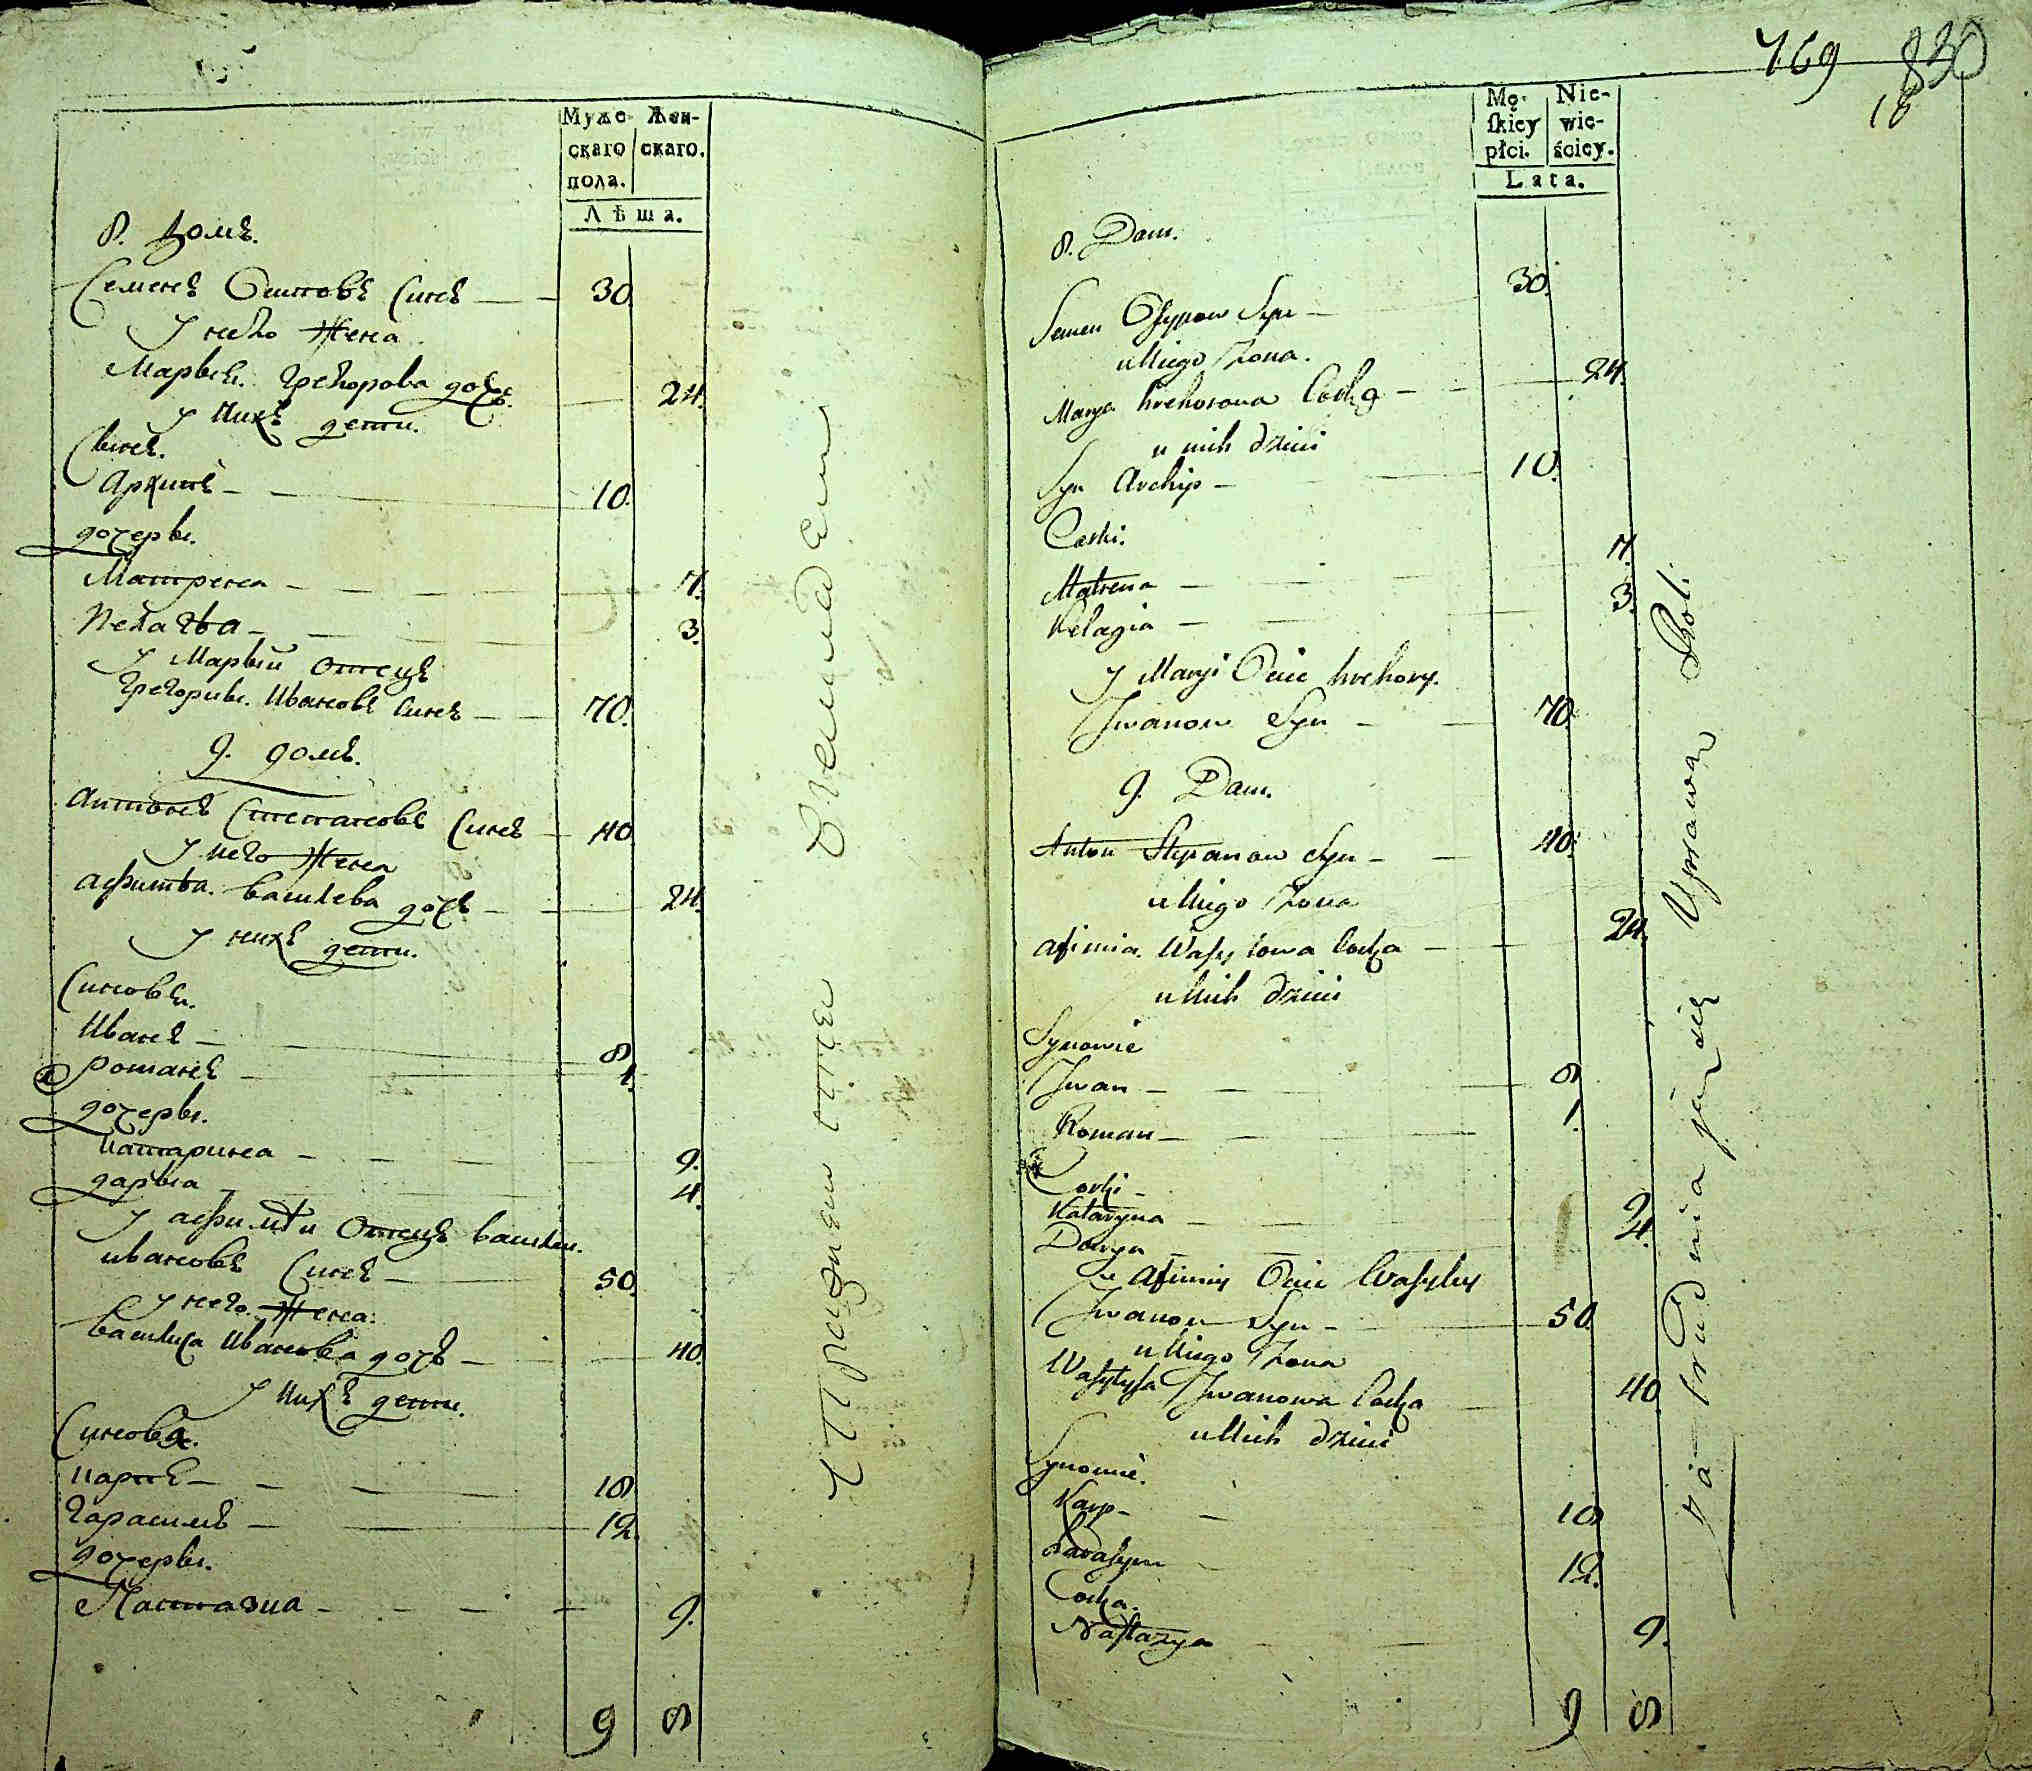 Муже- Жен-
скаго скаго.
пола.
Лѣта.
8. домъ.
Семенъ Осиповъ Синъ — 30.
У него Жена
Марья. Грегорова дочь. — 24.
У нихъ дети.
Синъ.
Архипъ — 10.
дочеры.
Матрена — 7.
Пелагѣа — 3.
У Марьи отецъ
Грегорий. Ивановъ Синъ — 70.
9. домъ.
Антонъ Степановъ Синъ — 40
У него Жена
Афимѣа. Василева дочъ — 24.
У нихъ дети.
Синовьи.
Иванъ — 8
Романъ — 1.
дочеры.
Катарина — 9.
дарыа — 4.
У Афимѣи Отецъ Василий.
Ивановъ Синъ — 50.
У него. Жена:
Василиса Иванова дочъ — 40.
У нихъ дети.
Синовьи.
Карпъ — 18
Гарасимъ — 12.
дочеры.
Настазиа — 9.
9 8
769 830
18
Mę- Nie-
ſkiey wie-
płci. ściey.
Lata.
8. Dom.
Semen Osypow Syn — 30.
u Niego Żona.
Marya Hrehorowa Corka — 24.
u nich dzieci
Syn Archip — 10.
Corki.
Matrena — 7.
Pelagia — 3.
U Maryi Ociec Hrehory.
Iwanow Syn — 70.
9. Dom.
Anton Stepanow Syn — 40.
u Niego Żona
Afimia. Wasylowa Corka — 24.
u Nich dzieci
Synowie
Iwan — 8
Roman — 1.
Corki —
Kataryna — 9
Darya — 4.
u Afimiy Ociec Wasyley
Iwanow Syn — 50.
u Niego Żona
Wasylysa Iwanowa Corka 40
u Nich dzieci
Synowie.
Karp — 18
Harasym 12.
Corka.
Nastazya 9.
9 8
Zatrudnia ją się Uprawą Roli.